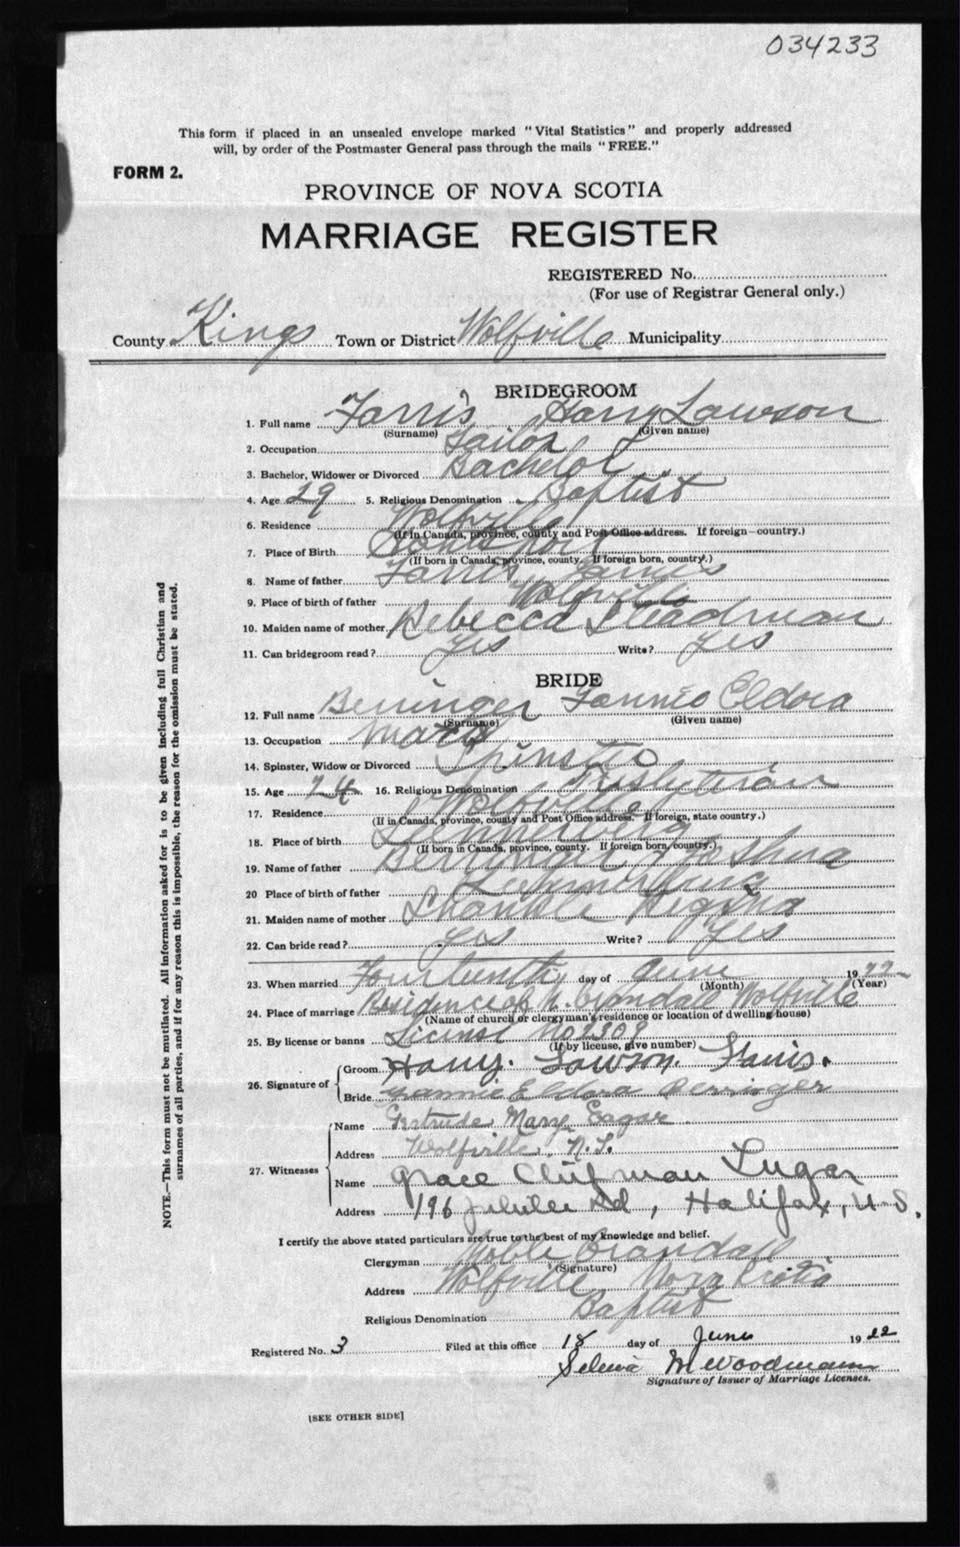 034233
This form if placed in an unsealed envelope marked "Vital Statistics" and properly addressed
will, by order of the Postmaster General pass through the mails "FREE."
FORM 2.
PROVINCE OF NOVA SCOTIA
MARRIAGE REGISTER
REGISTERED No.
(For use of Registrar General only.)
County Kings Town or District Wolfville Municipality
BRIDEGROOM
1. Full name Farris Harry Lawson
(Surname) (Given name)
2. Occupation Tailor
3. Bachelor, Widower or Divorced Bachelor
4. Age 29 5. Religious Denomination Baptist
6. Residence Wolfville
(If in Canada, province, county and Post Office address. If foreign—country.)
7. Place of Birth
(If born in Canada, province, county. If foreign born, country.)
8. Name of father Farris
9. Place of birth of father Wolfville
10. Maiden name of mother Rebecca Steadman
11. Can bridegroom read? yes Write? yes
BRIDE
12. Full name Berringer Fannie Eldora
(Surname) (Given name)
13. Occupation Maid
14. Spinster, Widow or Divorced Spinster
15. Age 24 16. Religious Denomination Presbyterian
17. Residence Wolfville
(If in Canada, province, county and Post Office address. If foreign, state country.)
18. Place of birth Lunenburg
(If born in Canada, province, county. If foreign born, country.)
19. Name of father Berringer Joshua
20 Place of birth of father Lunenburg
21. Maiden name of mother Regina
22. Can bride read? yes Write? yes
23. When married Fourteenth day of June 1922
(Month) (Year)
24. Place of marriage Residence of N. Crandall Wolfville
(Name of church or clergyman's residence or location of dwelling house)
25. By license or banns License No 2309
(If by license, give number)
26. Signature of { Groom Harry Lawson Farris.
Bride Fannie Eldora Berringer
27. Witnesses Name Gertrude Mary Eagar
Address Wolfville, N.S.
Name Grace Chipman Lugar
Address 196 Jubilee Rd, Halifax, N.S.
I certify the above stated particulars are true to the best of my knowledge and belief.
Clergyman Noble Crandall
(Signature)
Address Wolfville Nova Scotia
Religious Denomination Baptist
Registered No. 3 Filed at this office 18 day of June 1922
M Woodman
Signature of Issuer of Marriage Licenses.
[SEE OTHER SIDE]
NOTE.—This form must not be mutilated. All information asked for is to be given including full Christian and
surnames of all parties, and if for any reason this is impossible, the reason for the omission must be stated.